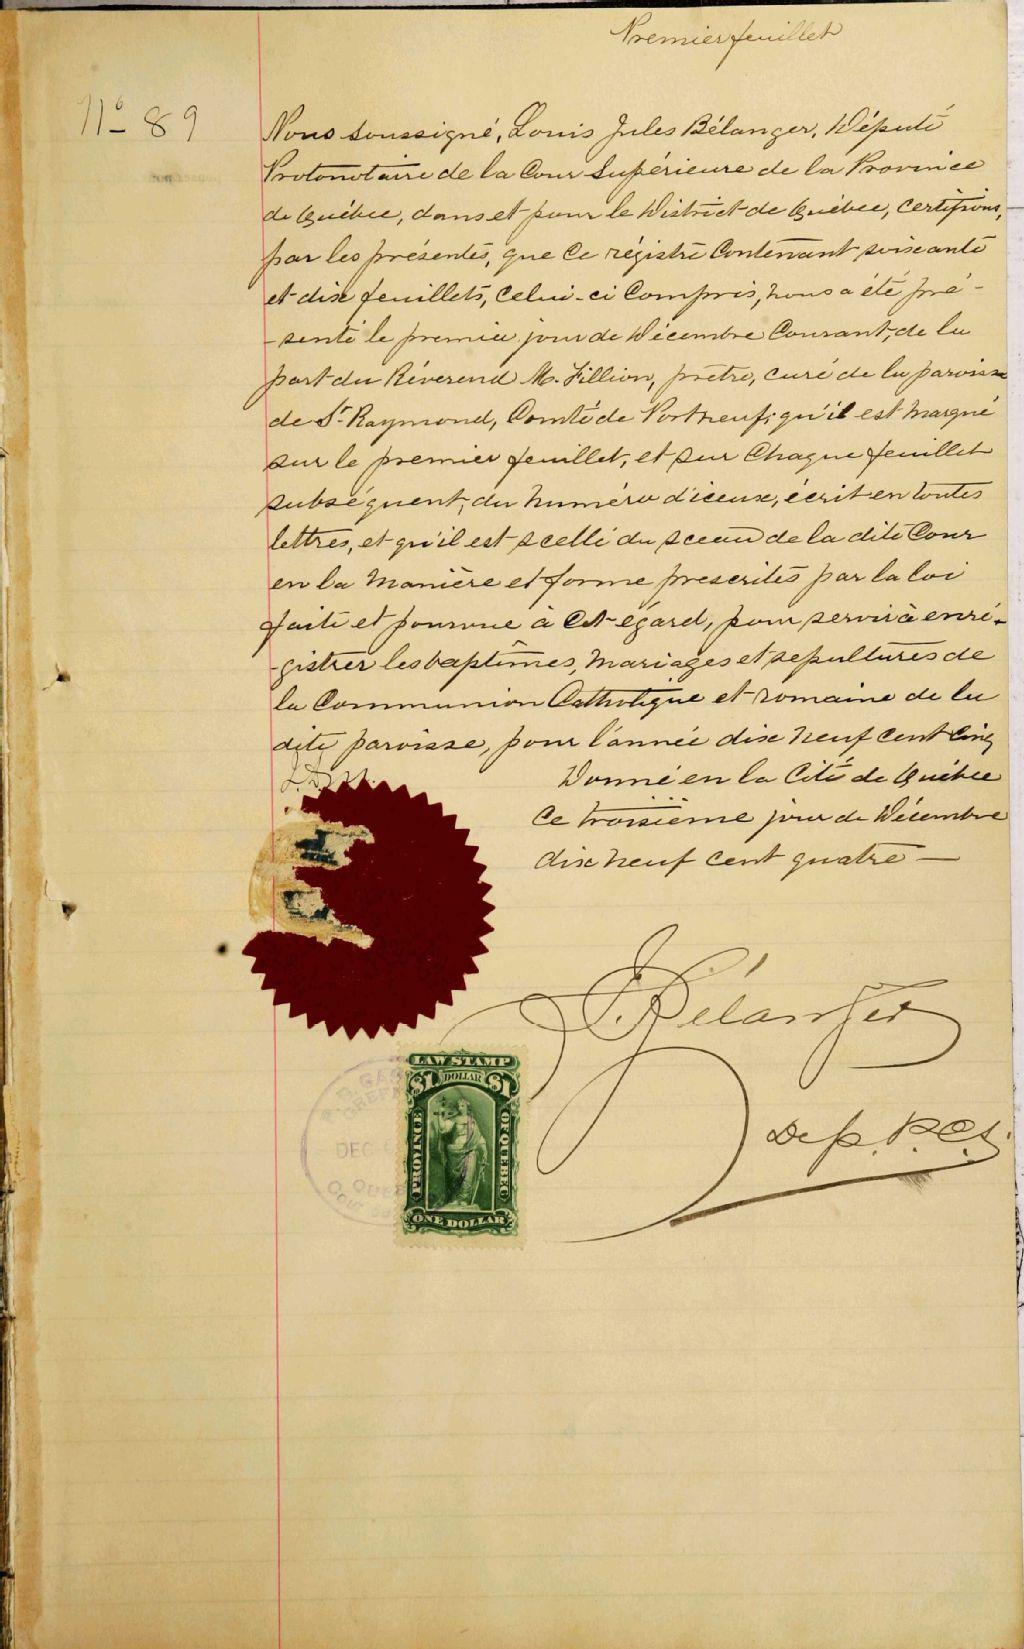 Premier feuillet
No 89
Nous soussigné, Louis Jules Bélanger, Député
Protonotaire de la Cour Supérieure de la Province
de Québec, dans et pour le District de Québec, certifions,
par les présentes, que ce régistre contenant soixante
et dix feuillets, celui-ci compris, nous a été pré-
-senté le premier jour de Décembre courant, de la
part du Révérend M. Fillion, prêtre, curé de la paroisse
de St Raymond, Comté de Portneuf; qu'il est marqué
sur le premier feuillet, et sur chaque feuillet
subséquent, du numéro d'iceux, écrit en toutes
lettres, et qu'il est scellé du sceau de la dite Cour
en la manière et forme prescrites par la loi
faite et pourvue à cet égard, pour servir à enré-
-gistrer les baptêmes, mariages et sépultures de
la Communion Catholique et romaine de la
dite paroisse, pour l'année dix neuf cent cinq
Donné en la Cité de Québec
ce troisième jour de Décembre
dix neuf cent quatre —
J. Bélanger
Dép. P.C.S.
LAW STAMP
$1 DOLLAR $1
PROVINCE OF QUEBEC
ONE DOLLAR
DEC